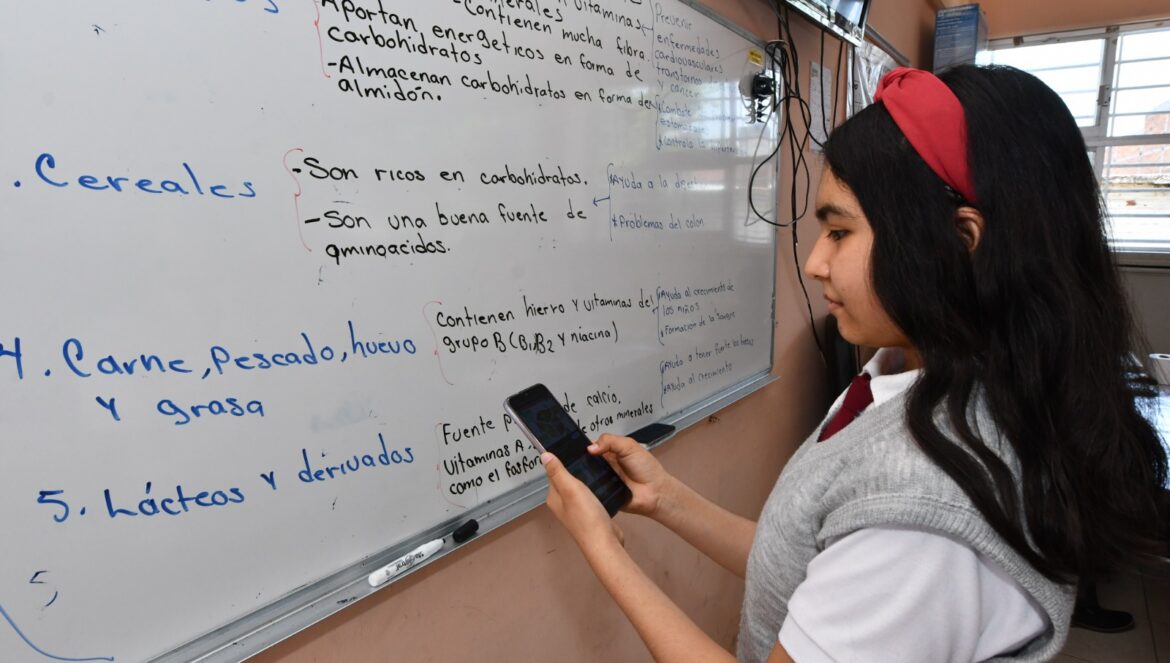 Vitaminas
-Contienen mucha fibra.
Aportan energeticos en forma de
carbohidratos
-Almacenan carbohidratos en forma de
almidón.
Prevenir
enfermedades
cardiovasculares
transtornos
y cancer
*Combate
. Cereales
-Son ricos en carbohidratos.
-Son una buena fuente de
aminoacidos.
*Ayuda a la
*Problemas del colon
4. Carne, pescado, huevo
y grasa
Contienen hierro y vitaminas del
grupo B (B1, B2 y niacina)
*Ayuda al crecimiento de
los niños
*Formación de la sangre
5. Lácteos y derivados
Fuente de calcio,
Vitaminas A de otros minerales
como el fosforo
*Ayuda a tener fuerte los
*ayuda al crecimiento
5